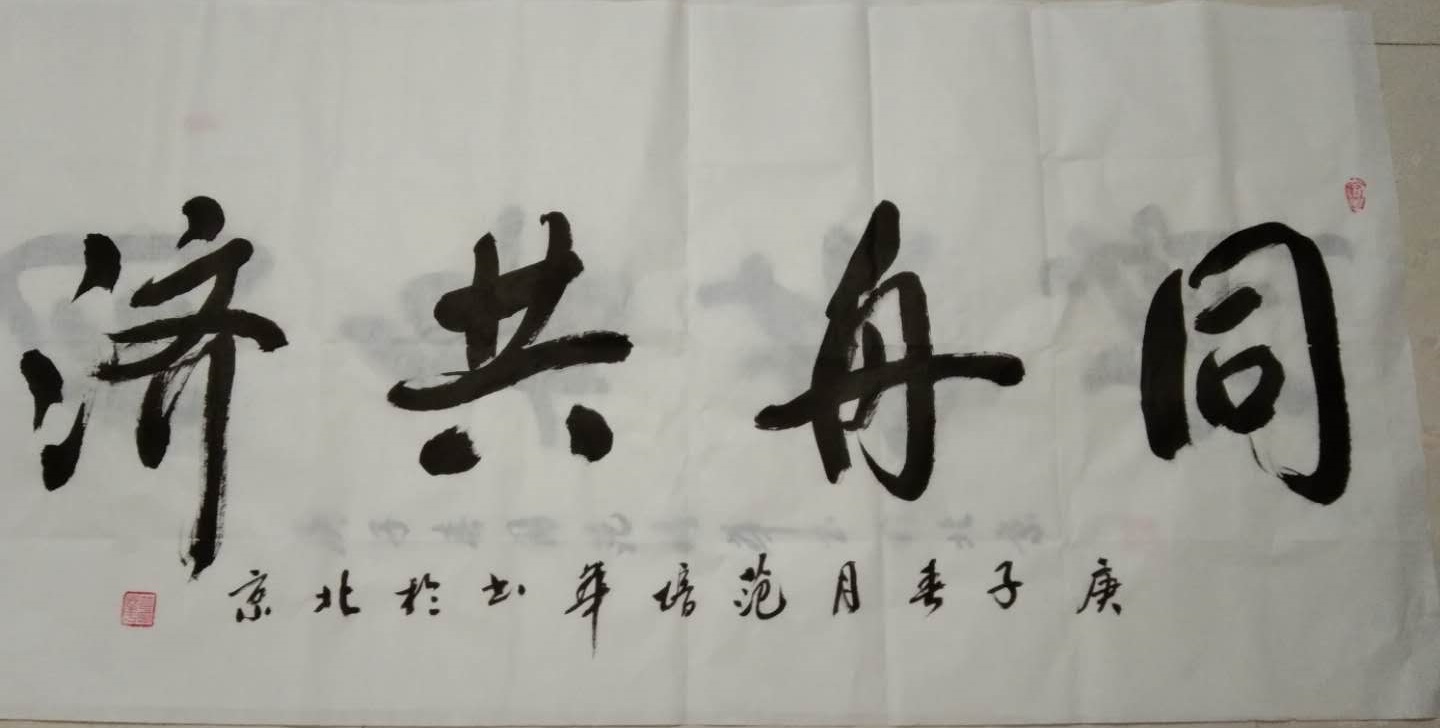 同舟共济
庚子春月范培华书于北京